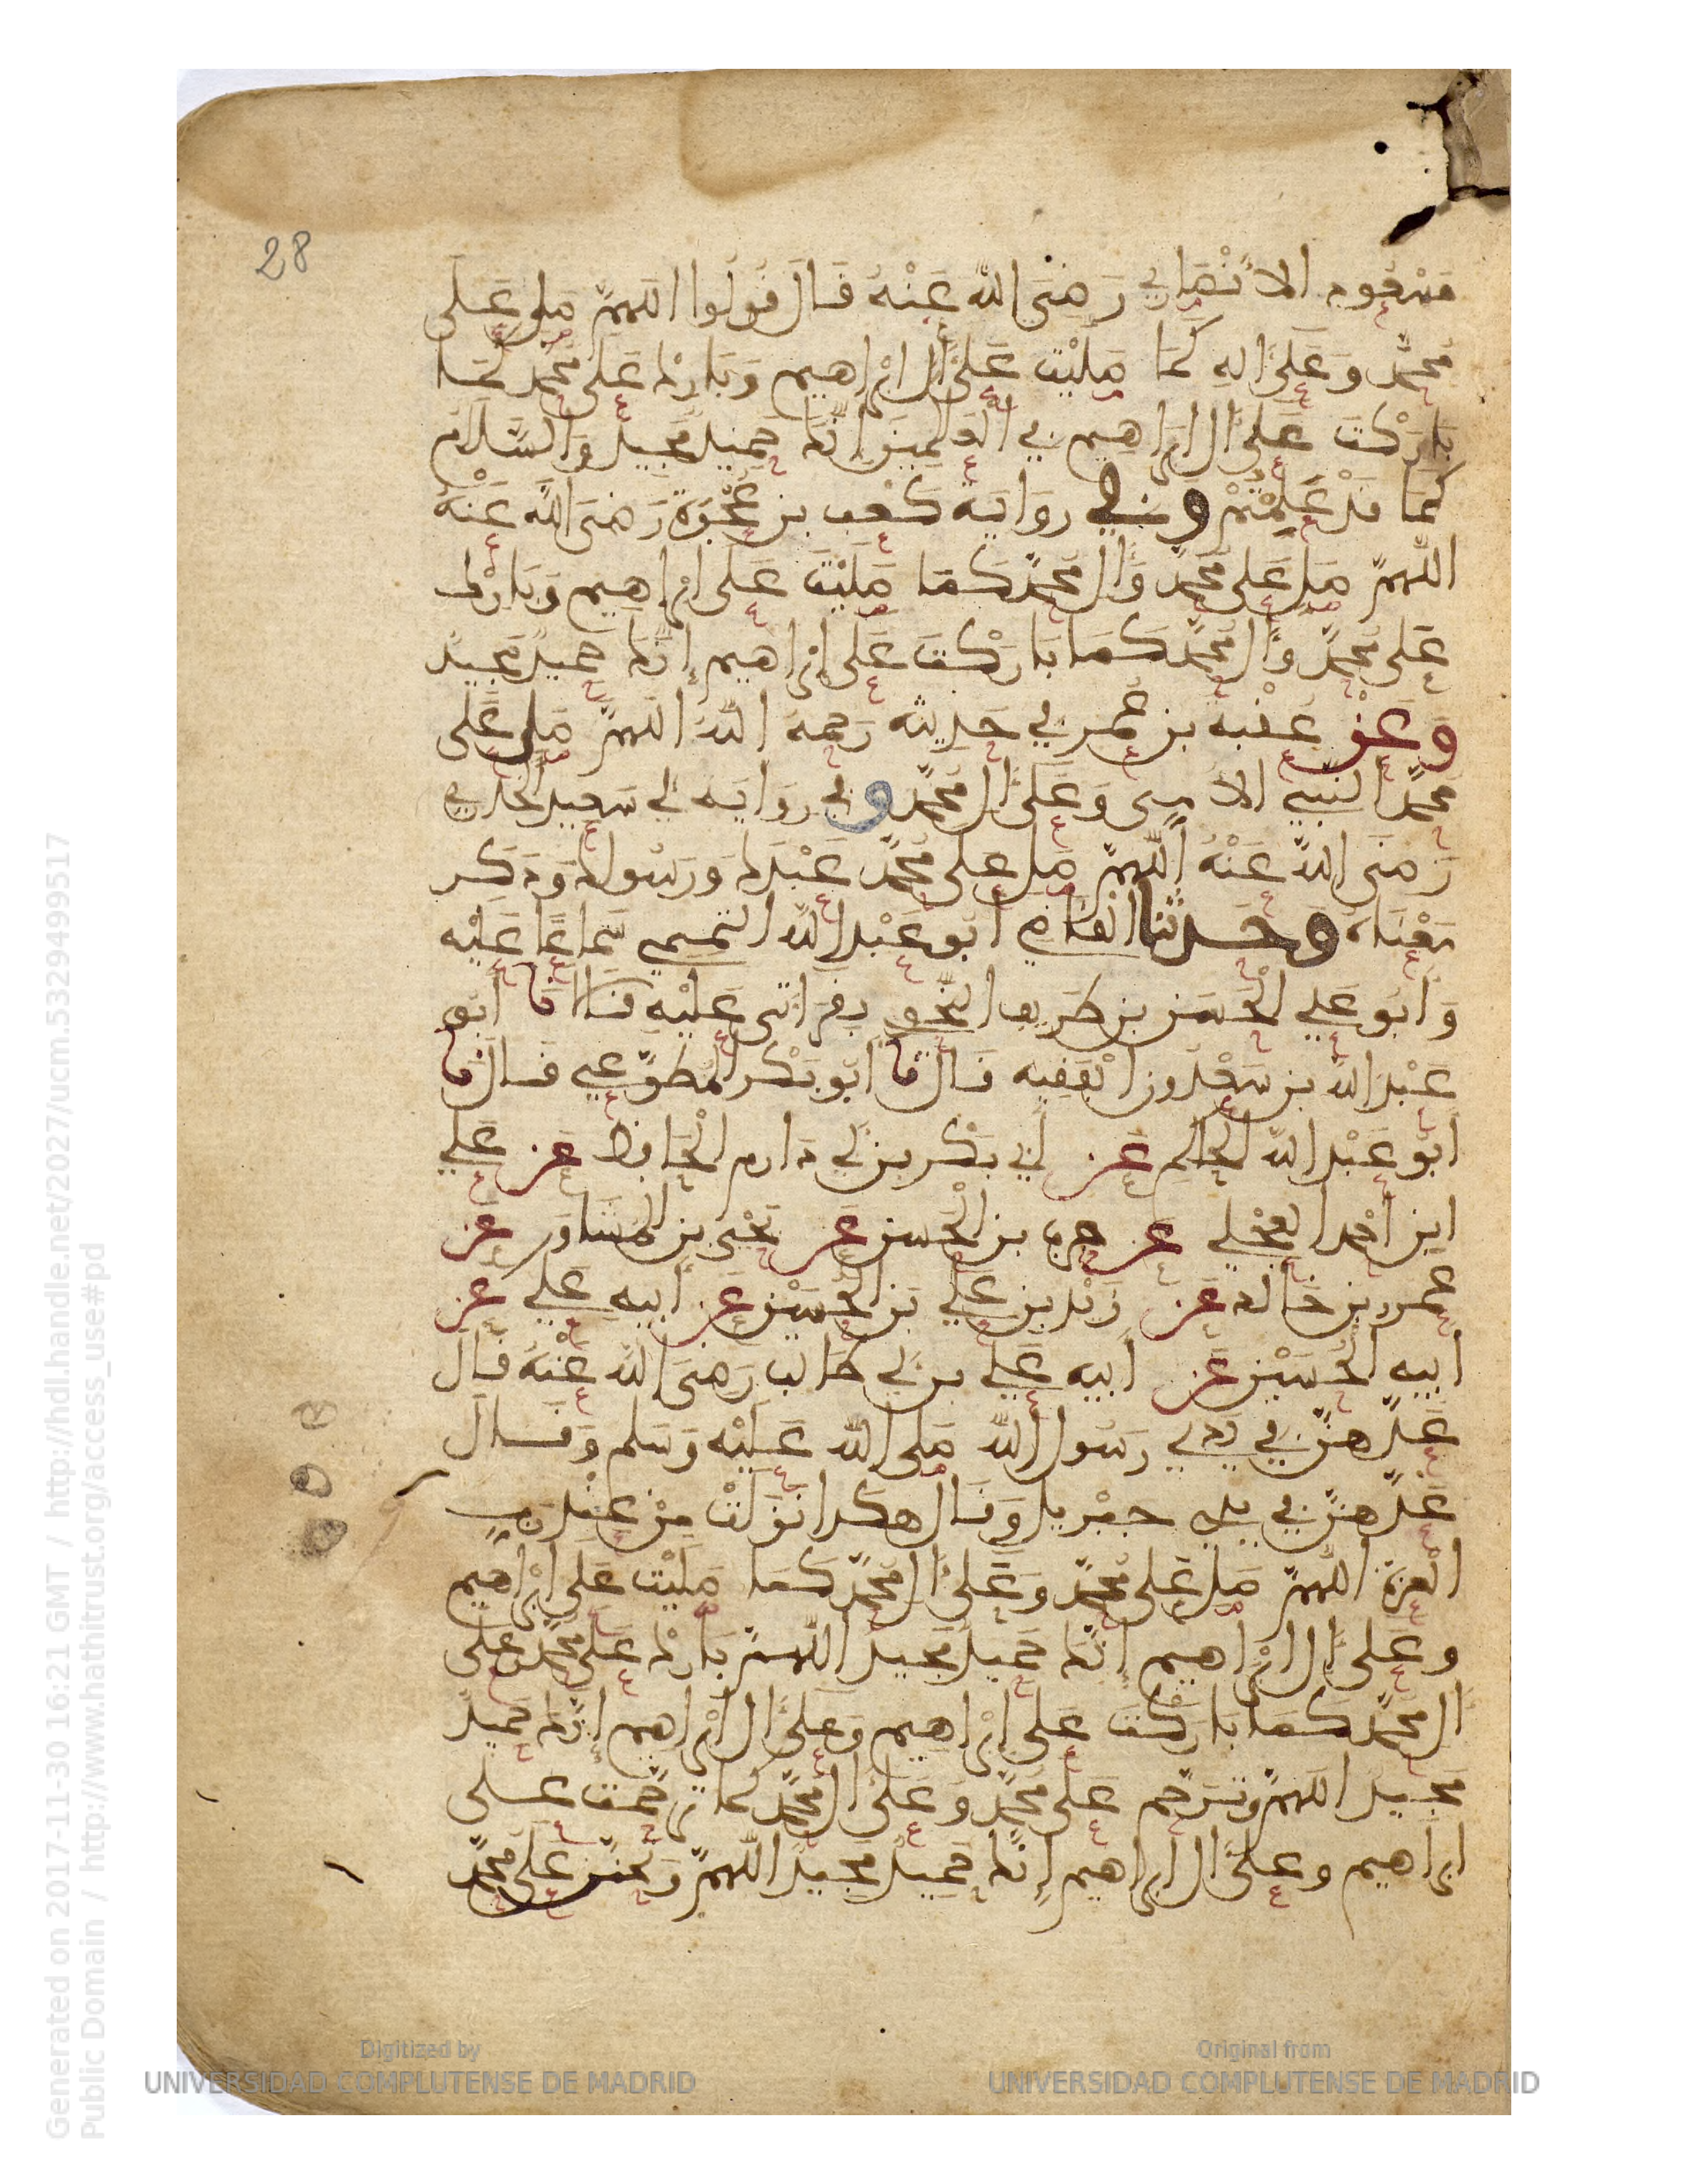 28
مسعود الانْصَارِي رَضِيَ اللَّه عَنْهُ قَالَ قُولُوا اللَّهمَّ صَلِ عَلَى
مُحمَّد وَعَلَىَ الِهِ كَمَا صَلَيْتَ عَلَىَ ال ابْرَاهِيم وَبَارِكْ عَلَى مُحَمَّد كَمَا
بَارَكْتَ عَلَىَ ال ابْرَاهِيم فِي الْعَلَمِينَ اِنَّكَ حَمِيد مَجِيدٌ وَالسَّلاَم
كَمَا قَدْ عَلِمْتُمْ وفي رِوَايَة كَعْب بن عُجْرَة رَضِيَ اللَّه عَنْهُ
اللَّهمَّ صَلِ عَلَى مُحَمَّد وَال مُحَمَّد كَمَا صَلَيْتَ عَلَى ابْرَاهِيم وَبَارِكْ
عَلَى مُحَمَّد وَال مُحَمَّد كَمَا بَارَكْتَ عَلَى اِبْرَاهِيم إِنَّكَ حَمِيدٌ مَجِيدٌ
وَعَنْ عُقْبَة بن عَمْرٍ فِي حَدِيثه رَحِمَهُ اللَّهُ اللَّهمَّ صَلِ عَلَى
مُحَمَّدٍ النَّبِيِ الامِّى وَعَلَىَ ال مُحَمَّد وفي رِوَايَة ابي سَعِيد الخُدْرِي
رَضِيَ اللَّهُ عَنْهُ اللَّهمَّ صَلِ عَلَى مُحَمَّد عَبْدِكَ وَرَسُولِكَ وَذَكَر
مَعْنَاهُ وَحَدثنا القَاضِي أَبُو عَبْدِ اللَّهِ التَّمِيمِي سَمَاعًا عَلَيْهِ
وَابُو عَلِي الْحَسَن بن طَرِيف النَّحْوِي بِقِرَاءَتِي عَلَيْهِ قَالا نَا أَبُو
عَبْدِ اللَّه بن سَعْدُون الْفَقِيه قَالَ نَا أَبُو بَكْر المُطَّوِّعِي قَالَ نَا
أَبُو عَبْدِ اللَّه الحَاكِم عَن أَبِي بَكْر بن أَبِي دَارِم الْحَافِظ عَن عَلِي
ابن أَحْمَد العِجْلِي عَن حَرْب بن الْحَسَن عَن يَحْيَى بن المُسَاوِر عَن
عَمْرِو بن خَالِد عَن زَيْد بن عَلِي بَن الْحُسَيْن عَن أَبِيهِ عَلِي عَن
أَبِيهِ الْحُسَيْن عَن أَبِيهِ عَلِي بن أَبِي طَالِب رَضِيَ اللَّه عَنْهُ قَالَ
عَدَّهُنَّ فِي يَدِي رَسُول اللَّه صَلَى اللَّه عَلَيْهِ وَسَلم وَقَالَ
عَدَّهُنَّ فِي يَدِي جِبْرِيل وَقَالَ هَكَذَا نَزَلَتْ مِنْ عِنْدِ رَبِّ
الْعِزَّة اللَّهمَّ صَلِ عَلَى مُحَمَّد وَعَلَىَ ال مُحَمَّد كَمَا صَلَيْتَ عَلَى ابْرَاهِيم
وعَلَىَ ال ابْرَاهِيم إِنَّكَ حَمِيد مَجِيد اللَّهمَّ بَارِكْ عَلَى مُحَمَّد وَعَلَى
ال مُحَمَّد كَمَا بَارَكْتَ عَلَى اِبْرَاهِيم وَعَلَىَ ال ابْرَاهِيم إِنَّكَ حَمِيدٌ
مَجِيد اللَّهمَّ وتَرَحَّم عَلَى مُحَمَّد وَعَلَىَ ال مُحَمَّد كَمَا تَرَحَّمْتَ عَلَى
ابْرَاهِيم وعَلَىَ ال ابْرَاهِيم إِنَّكَ حَمِيدٌ مَجِيدٌ اللَّهمَّ وَتَحَنَّن عَلَى مُحَمَّد
Generated on 2017-11-30 16:21 GMT / http://hdl.handle.net/2027/ucm.5329499517
Public Domain / http://www.hathitrust.org/access_use#pd
Digitized by
UNIVERSIDAD COMPLUTENSE DE MADRID
Original from
UNIVERSIDAD COMPLUTENSE DE MADRID